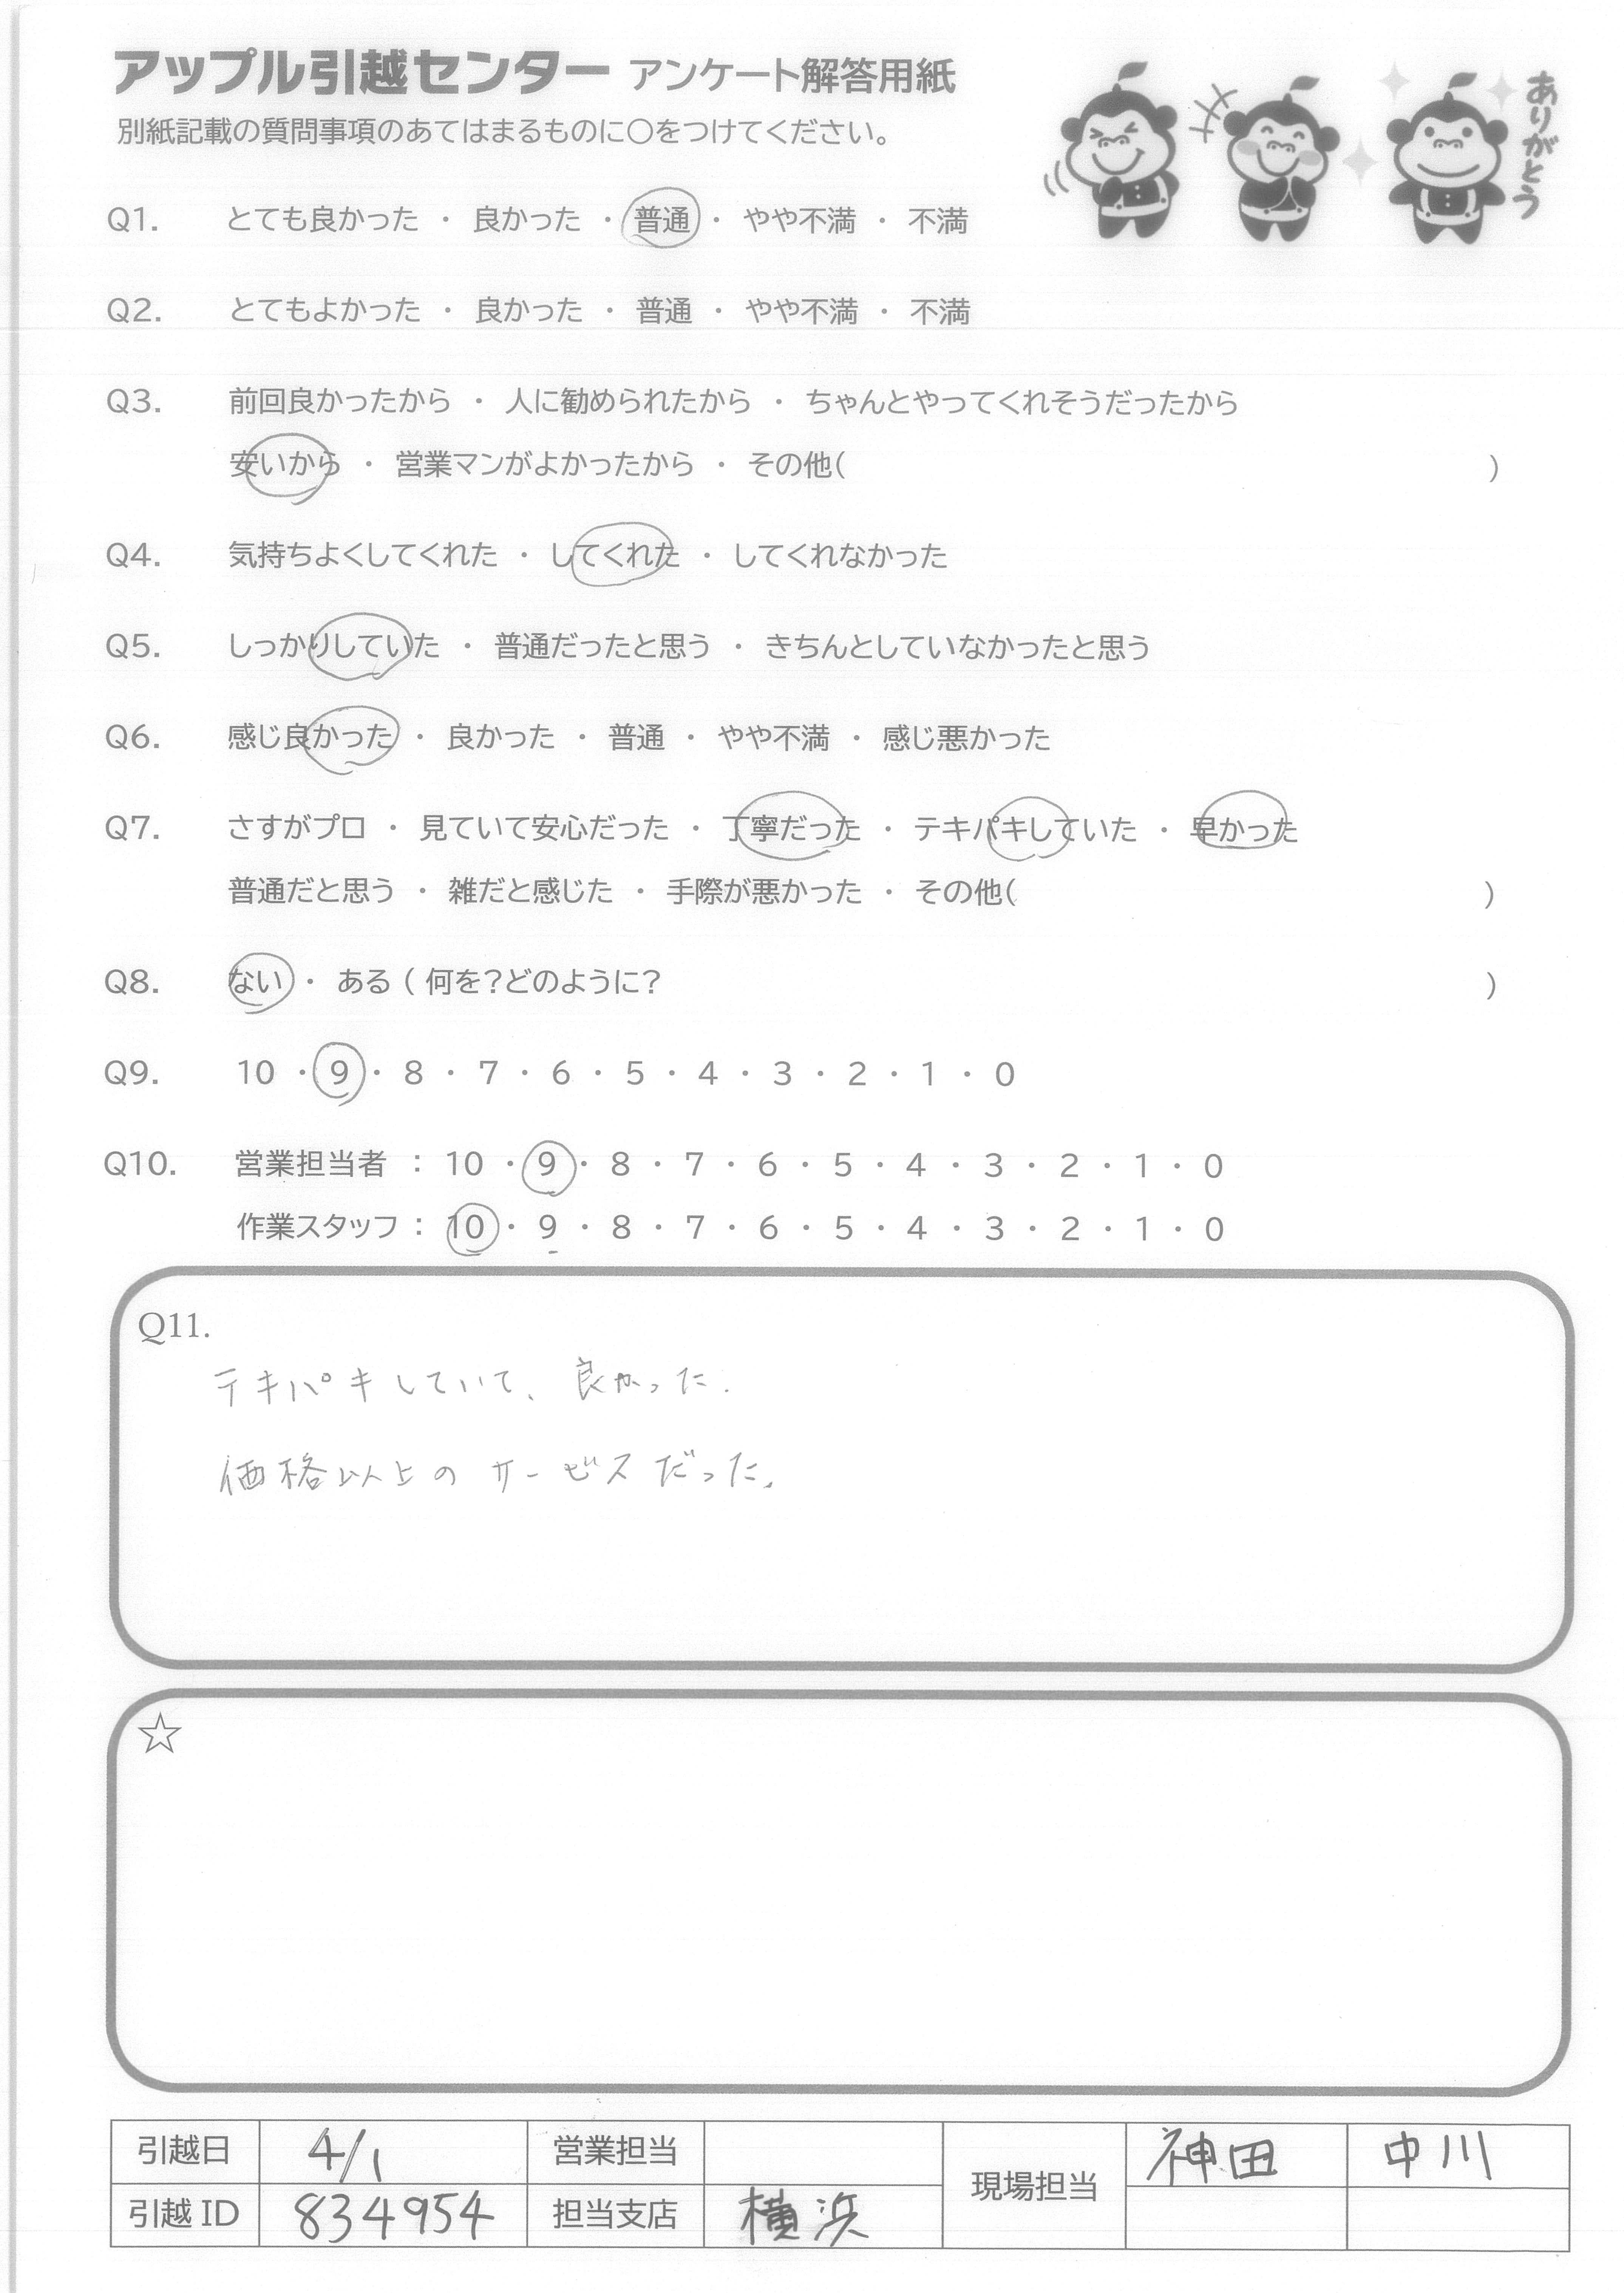 アップル引越センター アンケート解答用紙
ありがとう
別紙記載の質問事項のあてはまるものに〇をつけてください。
Q1. とても良かった ・ 良かった ・ 普通 ・ やや不満 ・ 不満
Q2. とてもよかった ・ 良かった ・ 普通 ・ やや不満 ・ 不満
Q3. 前回良かったから ・ 人に勧められたから ・ ちゃんとやってくれそうだったから
安いから ・ 営業マンがよかったから ・ その他( )
Q4. 気持ちよくしてくれた ・ してくれた ・ してくれなかった
Q5. しっかりしていた ・ 普通だったと思う ・ きちんとしていなかったと思う
Q6. 感じ良かった ・ 良かった ・ 普通 ・ やや不満 ・ 感じ悪かった
Q7. さすがプロ ・ 見ていて安心だった ・ 丁寧だった ・ テキパキしていた ・ 早かった
普通だと思う ・ 雑だと感じた ・ 手際が悪かった ・ その他( )
Q8. ない ・ ある ( 何を?どのように? )
Q9. 10 ・ 9 ・ 8 ・ 7 ・ 6 ・ 5 ・ 4 ・ 3 ・ 2 ・ 1 ・ 0
Q10. 営業担当者 : 10 ・ 9 ・ 8 ・ 7 ・ 6 ・ 5 ・ 4 ・ 3 ・ 2 ・ 1 ・ 0
作業スタッフ : 10 ・ 9 ・ 8 ・ 7 ・ 6 ・ 5 ・ 4 ・ 3 ・ 2 ・ 1 ・ 0
Q11.
テキパキしていて、良かった.
価格以上のサービスだった.
☆
引越日 4/1 営業担当 現場担当 神田 中川
引越ID 834954 担当支店 横浜